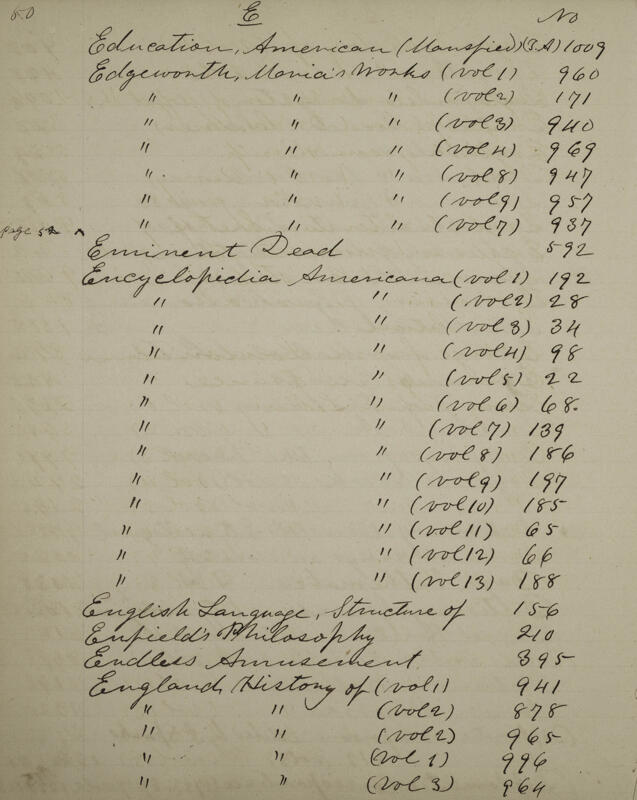 50 E No
Education, American (Mansfied) (3.A) 1009
Edgeworth, Maria's Works (vol 1) 960
" " " (vol 2) 171
" " " (vol 3) 940
" " " (vol 4) 969
" " " (vol 8) 947
" " " (vol 9) 957
" " " (vol 7) 937
page 52 ^
Eminent Dead 592
Encyclopedia Americana (vol 1) 192
" " (vol 2) 28
" " (vol 3) 34
" " (vol 4) 98
" " (vol 5) 22
" " (vol 6) 68.
" " (vol 7) 139
" " (vol 8) 186
" " (vol 9) 197
" " (vol 10) 185
" " (vol 11) 65
" " (vol 12) 66
" " (vol 13) 188
English Language, Structure of 156
Enfield's Philosophy 210
Endless Amusement 395
England, History of (vol 1) 941
" " (vol 2) 878
" " (vol 2) 965
" " (vol 1) 996
" " (vol 3) 964